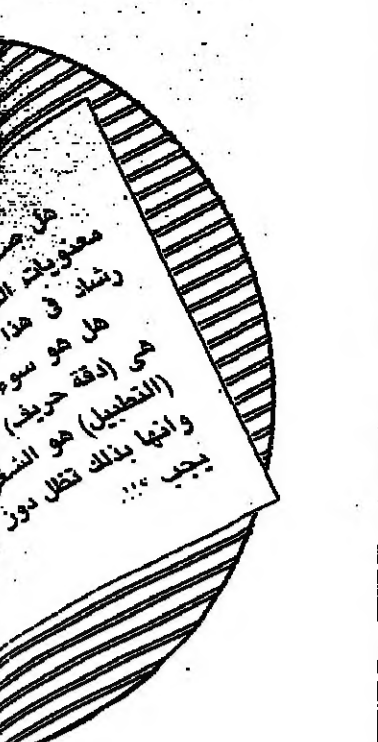 هل
معنويات
رشاد في هذا
هل هو سوء
هي (دقة حريف)
(التطبيل) هو
وانها بذلك تظل دوز
يجب ....